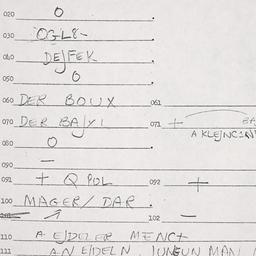 020 O
030 OGL8-
040 DEJFEK
050 O
060 DER BOUX 061
070 DER BAJXL 071 + BA
A KLEJNC
080 O
090 —
091 + Q POL 092 +
100 MAGER/ DAR
101 102 —
110 A EJDELER MENCH
111 AN EJDELN JUNGUN MAN